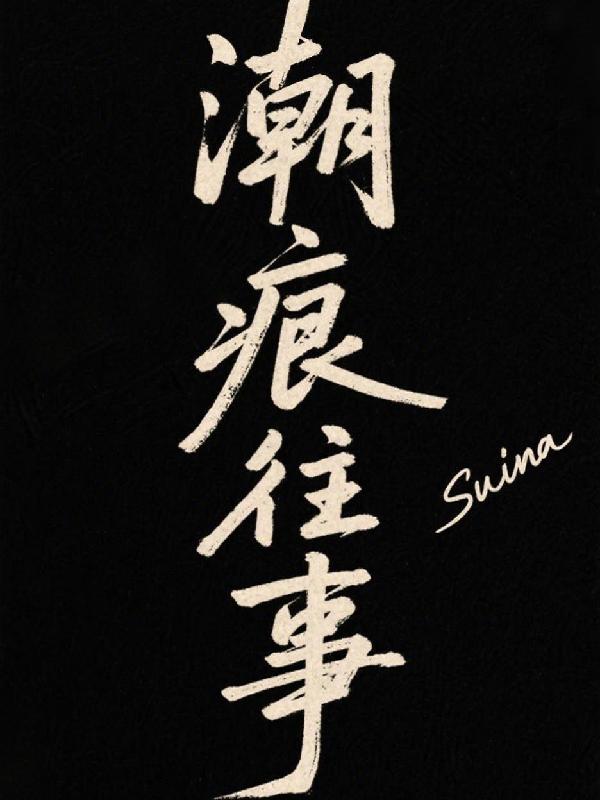 潮痕往事
Suina